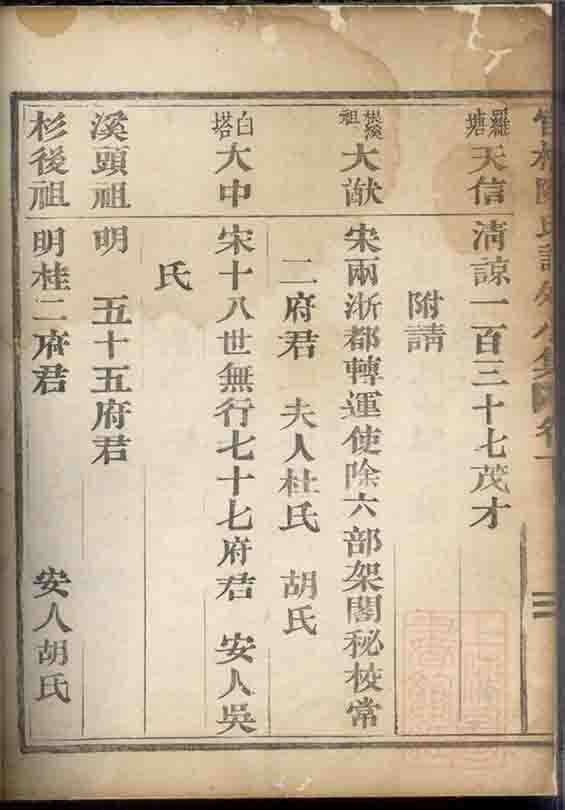 羅塘天信 清諒一百三十七茂才
附請
根溪祖大猷 宋兩浙都轉運使除六部架閣秘校常
二府君 夫人杜氏 胡氏
白塔大中 宋十八世無行七十七府君 安人吳
氏
溪頭祖 明 五十五府君
杉後祖 明桂二府君 安人胡氏